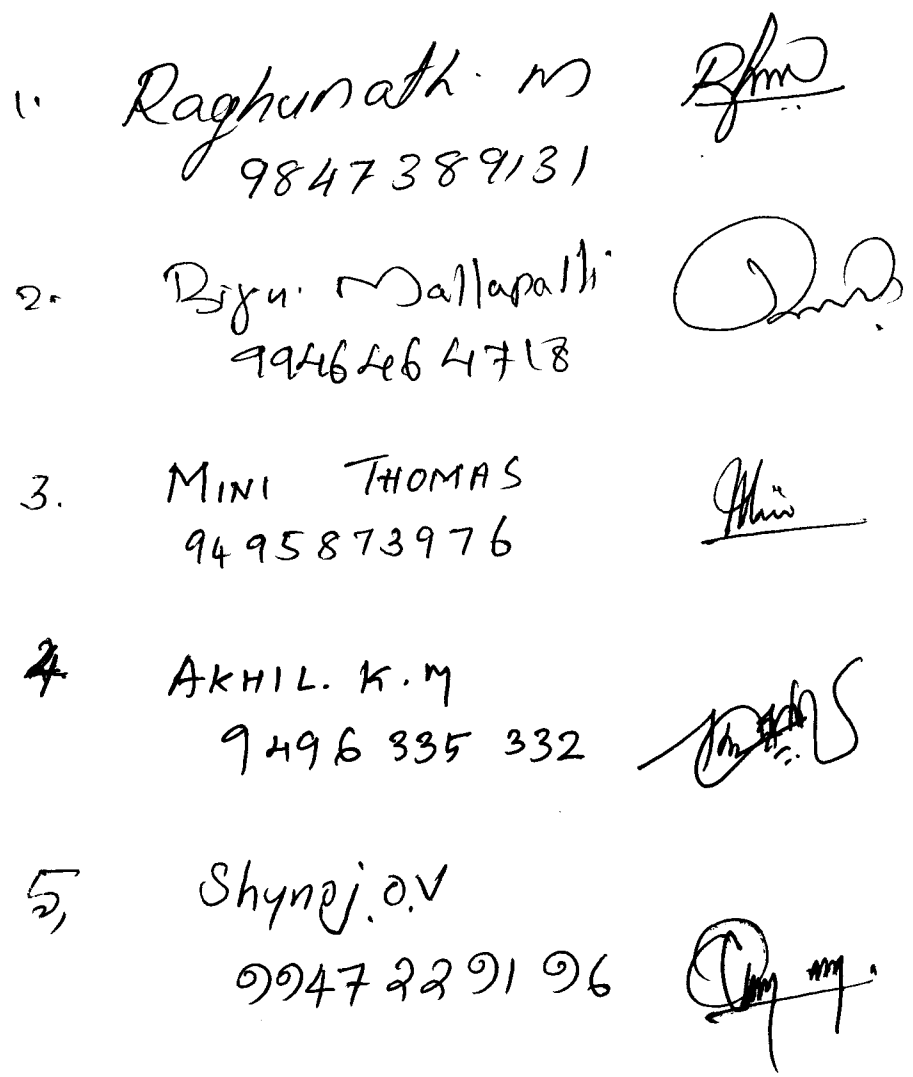 1. Raghunath. M
9847389131
2. Biju. Mallapalli
9946464718
3. MINI THOMAS
9495873976
4. AKHIL. K. M
9496 335 332
5, Shynoj. O. V
9947229196